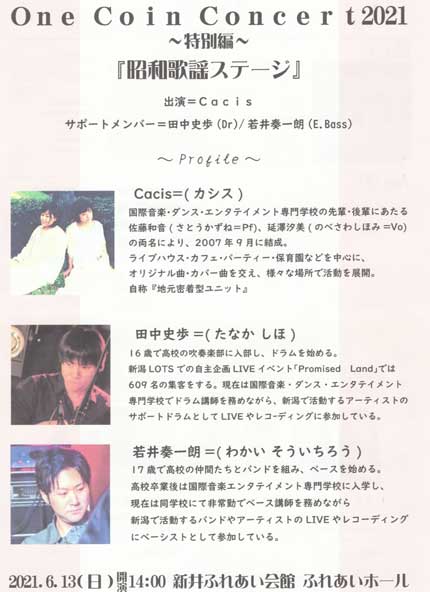 One Coin Concert2021
～特別編～
『昭和歌謡ステージ』
出演＝Cacis
サポートメンバー＝田中史歩(Dr)/若井奏一朗(E.Bass)
～Profile～
Cacis=(カシス)
国際音楽・ダンス・エンタテイメント専門学校の先輩・後輩にあたる
佐藤和音(さとうかずね=Pf)、延澤汐美(のべさわしほみ=Vo)
の両名により、2007年9月に結成。
ライブハウス・カフェ・パーティー・保育園などを中心に、
オリジナル曲・カバー曲を交え、様々な場所で活動を展開。
自称『地元密着型ユニット』
田中史歩=(たなか しほ)
16歳で高校の吹奏楽部に入部し、ドラムを始める。
新潟LOTSでの自主企画LIVEイベント「Promised Land」では
609名の集客をする。現在は国際音楽・ダンス・エンタテイメント
専門学校でドラム講師を務めながら、新潟で活動するアーティストの
サポートドラムとしてLIVEやレコーディングに参加している。
若井奏一朗=(わかい そういちろう)
17歳で高校の仲間たちとバンドを組み、ベースを始める。
高校卒業後は国際音楽エンタテイメント専門学校に入学し、
現在は同学校にて非常勤でベース講師を務めながら
新潟で活動するバンドやアーティストのLIVEやレコーディング
にベーシストとして参加している。
2021.6.13(日)開演14:00 新井ふれあい会館 ふれあいホール